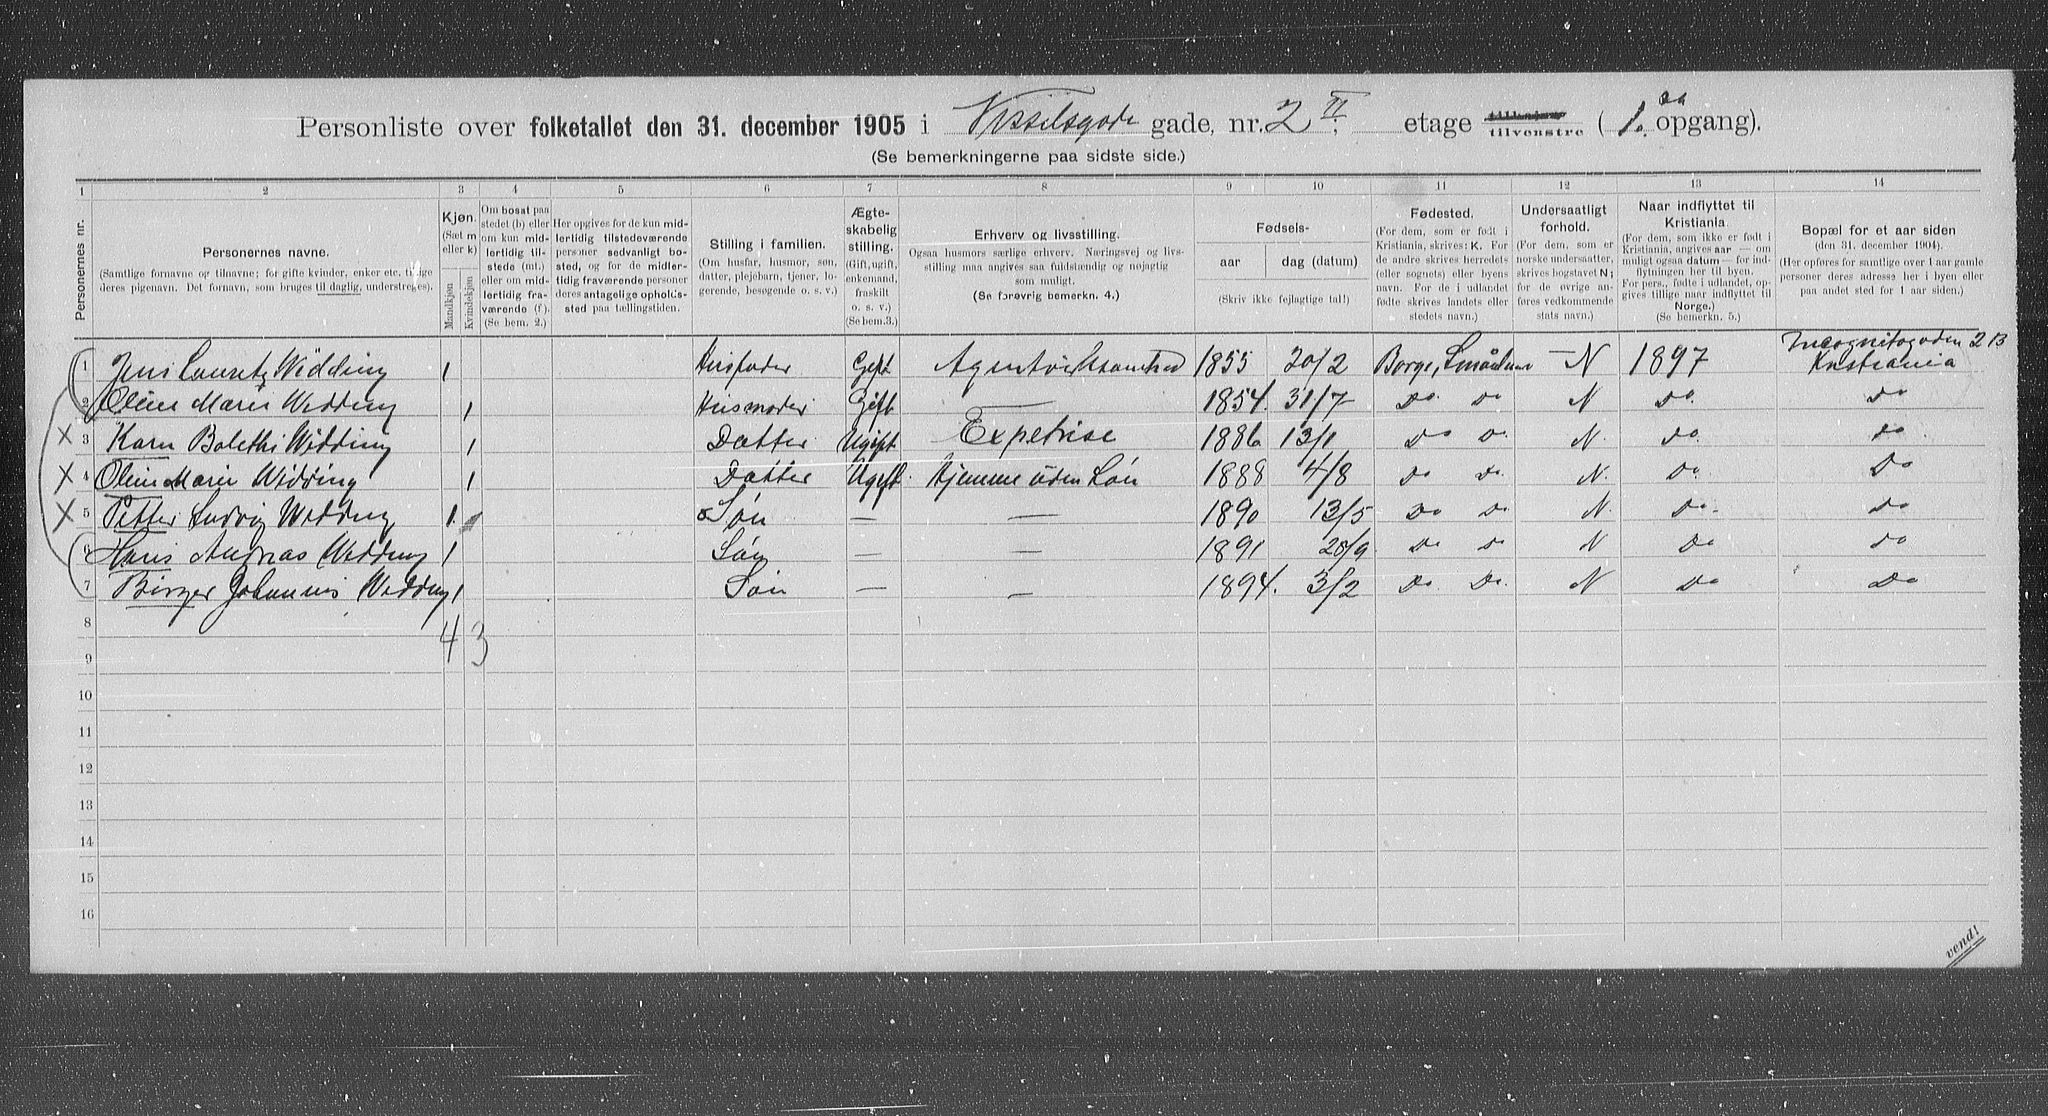 Personliste over folketallet den 31. december 1905 i Nisselsgade gade, nr. 2 II. etage tilvenstre (1. opgang).
(Se bemerkningerne paa sidste side.)
1 2 3 4 5 6 7 8 9 10 11 12 13 14
Personernes nr.
Personernes navne.
(Samtlige fornavne og tilnavne; for gifte kvinder, enker etc. tillige
deres pigenavn. Det fornavn, som bruges til daglig, understreges).
Kjøn.
(Sæt m
eller k)
Mandkjøn
Kvindekjøn
Om bosat paa
stedet (b) eller
om kun mid-
lertidig til-
stede (mt.)
eller om mid-
lertidig fra-
værende (f).
(Se bem. 2.)
Her opgives for de kun mid-
lertidig tilstedeværende
personer sedvanligt bo-
sted, og for de midler-
tidig fraværende personer
deres antagelige opholds-
sted paa tællingstiden.
Stilling i familien.
(Om husfar, husmor, søn,
datter, plejebarn, tjener, lo-
gerende, besøgende o. s. v.)
Ægte-
skabelig
stilling.
(Gift, ugift,
enkemand,
fraskilt
o. s. v.)
(Se bem.3.)
Erhverv og livsstilling.
Ogsaa husmors særlige erhverv. Næringsvej og livs-
stilling maa angives saa fuldstændig og nøjagtig
som muligt.
(Se forøvrig bemerkn. 4.)
Fødsels-
aar dag (datum)
(Skriv ikke fejlagtige tal!)
Fødested.
(For dem, som er født i
Kristiania, skrives: K. For
de andre skrives herredets
(eller sognets) eller byens
navn. For de i udlandet
fødte skrives landets eller
stedets navn.)
Undersaatligt
forhold.
(For dem, som er
norske undersaatter,
skrives bogstavet N;
for de øvrige an-
føres vedkommende
stats navn.)
Naar indflyttet til
Kristiania.
(For dem, som ikke er født i
Kristiania, angives aar — om
muligt ogsaa datum — for ind-
flytningen her til byen.
For pers., fødte i udlandet, op-
gives tillige naar indflyttet til
Norge.)
(Se bemerkn. 5.)
Bopæl for et aar siden
(den 31. december 1904).
(Her opføres for samtlige over 1 aar gamle
personer deres adresse her i byen eller
paa andet sted for 1 aar siden.)
1 Jens Lauretz Widding 1 Husfader Gift Agentvirksomhed 1855 20/2 Borge, Smaalenene N 1897 Incognitogaden 2 B Kristiania
2 Oline Marie Widding 1 Husmoder Gift — 1854. 31/7 Do Do N Do. Do
3 Karn Bolethe Widding 1 Datter Ugift Expetrise 1886 13/1 Do D. N. Do. Do
4 Oline Marie Widding 1 Datter Ugift. Hjemme uden Løn 1888 4/8 Do Do. N. Do. Do
5 Petter Ludvig Widding 1. Søn — — 1890 13/5 Do Do N. Do. Do
6 Hans Andreas Widding 1 Søn — — 1891 20/9 Do Do N Do Do
7 Birger Johannes Widding 1 Søn — — 1894. 3/2 Do. Do. N Do Do
8
4 3
9
10
11
12
13
14
15
16
vend!